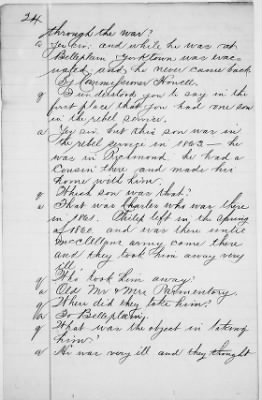 24.
through the war?
a Yes sir; and while he was at
Belleplain, Yorktown was evac-
uated and he never came back.
By Commissioner Howell.
q I understood you to say in the
first place that you had one son
in the rebel service.
a Yes sir. but this son was in
the rebel service in 1863 — he
was in Richmond. he had a
cousin there and made her
home with him.
q Which son was that?
a That was Charles who was there
in 1861. Philip left in the spring
of 1860. and was there until
McClellans army come there
and they took him away very
ill.
q Who took him away?
a Old Mr & Mrs Parmentory.
q Where did they take him?
a To Belleplain.
q What was the object in taking
him?
a He was very ill and they thought